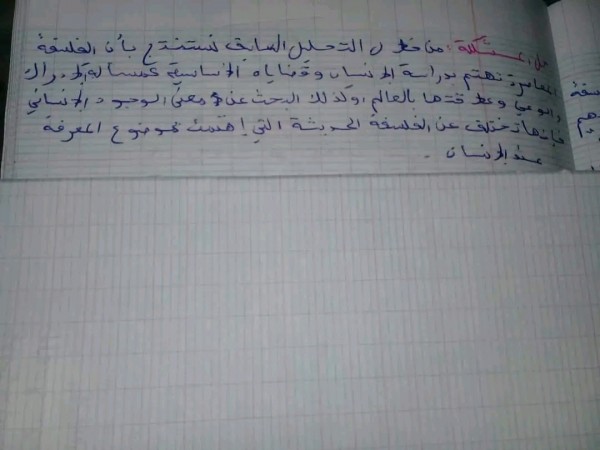 حل المشكلة: من خلال التحليل السابق نستنتج بأن الفلسفة
المعاصرة تهتم بدراسة الإنسان وقضاياه الأساسية كمسألة الإدراك
والوعي وعلاقتها بالعالم، وكذلك البحث عن معنى الوجود الإنساني
فإنها تختلف عن الفلسفة الحديثة التي إهتمت بموضوع المعرفة
عند الإنسان.